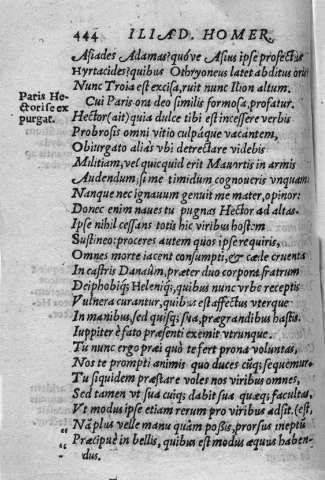 444 ILIAD. HOMER.
Asiades Adamas? quóve Asius ipse profectus
Hyrtacides? quibus Othryoneus latet abditus oris?
Nunc Troia est excisa, ruit nunc Ilion altum.
Paris He-
ctori se ex
purgat.
Cui Paris ora deo similis formosa, profatur.
Hector (ait) quia dulce tibi est incessere verbis
Probrosis omni vitio culpáque vacantem,
Obiurgato aliàs vbi detrectare videbis
Militiam, vel quicquid erit Mauortis in armis
Audendum, si me timidum cognoueris vnquam:
Nanque nec ignauum genuit me mater, opinor:
Donec enim naues tu pugnas Hector ad altas.
Ipse nihil cessans totis hic viribus hostem
Sustineo: proceres autem quos ipse requiris,
Omnes morte iacent consumpti, & cæle cruenta
In castris Danaûm, præter duo corpora fratrum
Deiphobiq; Heleniq; quibus nunc vrbe receptis
Vulnera curantur, quibus est affectus vterque
In manibus, sed quisq; sua, prægrandibus hastis.
Iuppiter è fato præsenti exemit vtrunque.
Tu nunc ergo præi quò te fert prona voluntas,
Nos te prompti animis quo duces cūq; sequemur.
Tu siquidem præstare voles nos viribus omnes,
Sed tamen vt sua cuiq; dabit sua quæq; facultas,
Vt modus ipse etiam rerum pro viribus adsit. (est,
„ Nā plus velle manu quàm possis, prorsus ineptū
„ Præcipuè in bellis, quibus est modus æquus haben-
„ dus.